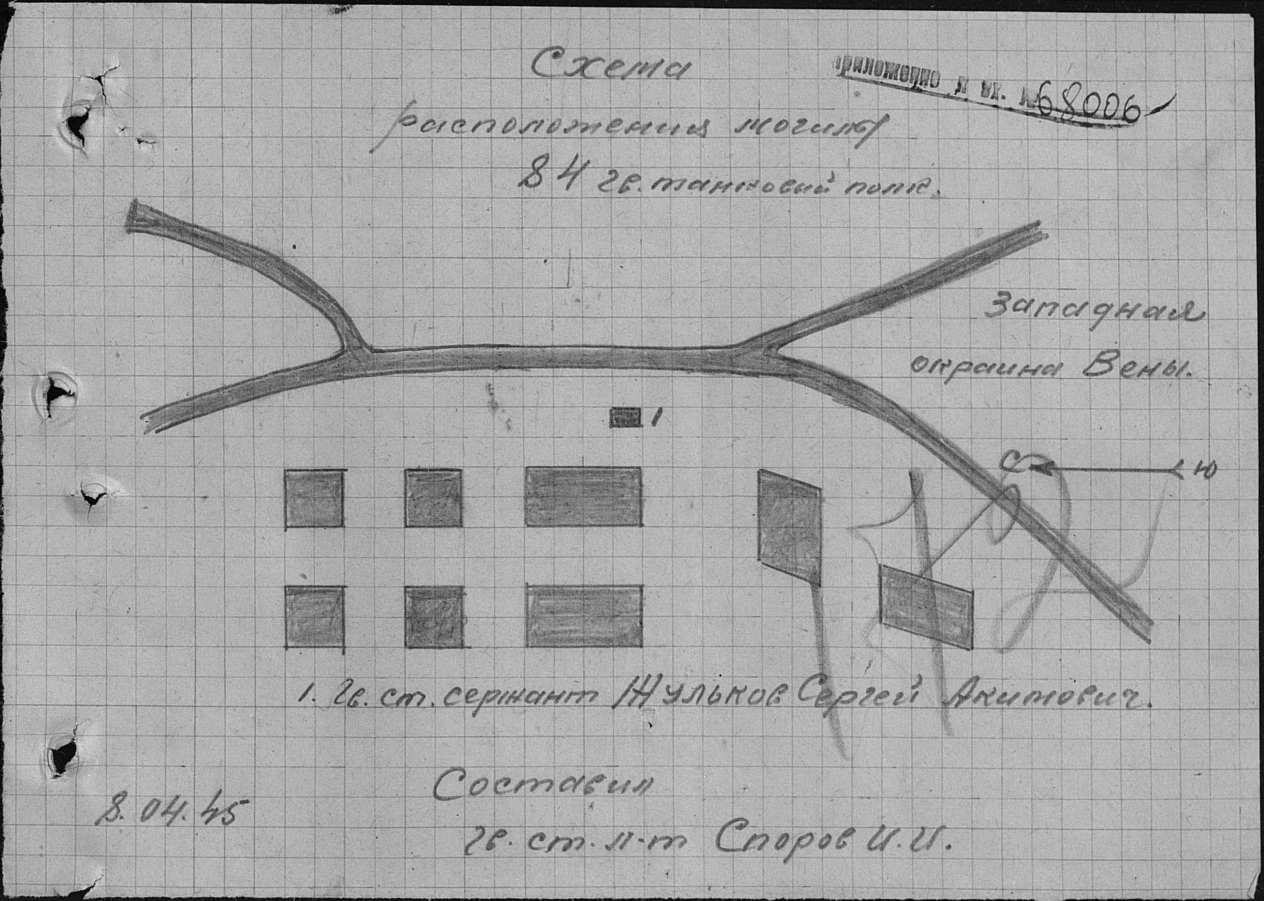 Схема
Приложение к вх. № 68006
расположения могилы
84 гв. танковый полк.
Западная
окраина Вены.
1
С Ю
1. Гв. ст. сержант Жульков Сергей Акимович.
Составил
8.04.45
гв. ст. л-т Споров И.И.